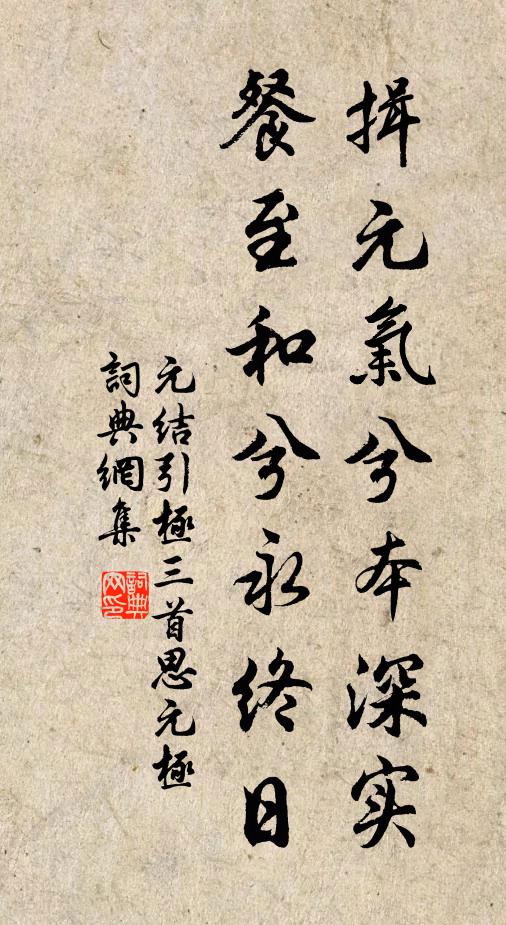 揖元氣兮本深实
餐至和兮永終日
元结引極三首思元極
詞典網集
詞典网印